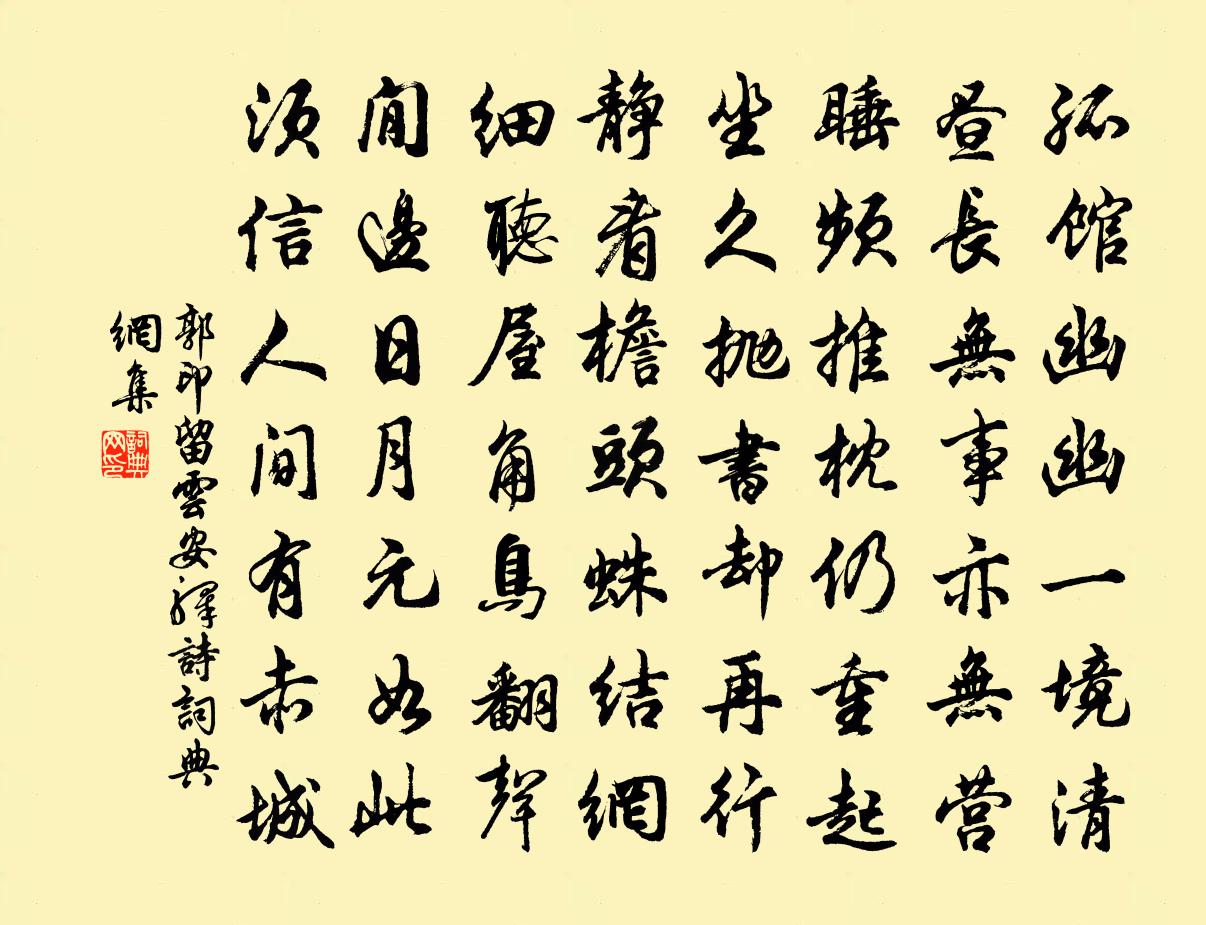 孤馆幽幽一境清
昼長無事亦無营
睡頻推枕仍重起
坐久抛書却再行
静看檐頭蛛结網
细聴屋角鳥翻聲
閒邊日月元如此
须信人间有赤城
郭印留雲安驛詩詞典
網集
詞典网印